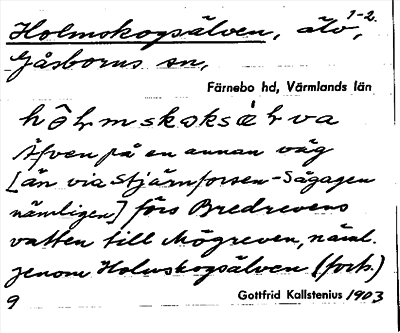 1-2.
Holmskogsälven, älv,
Gåsborns sn,
Färnebo hd, Värmlands län
Äfven på en annan väg
[än via Stjärnforsen-Sågagen
nämligen] förs Bredrevens
vatten till Mögreven, näml.
genom Holmskogsälven (forts.)
9
Gottfrid Kallstenius 1903